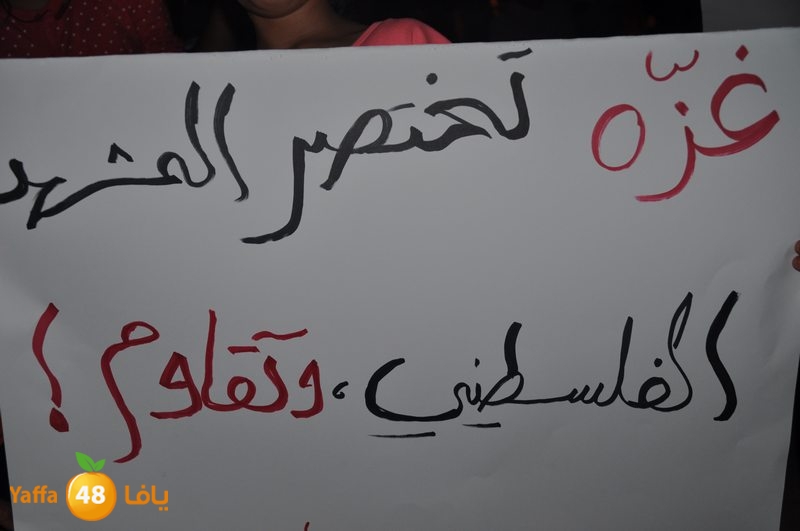 غزّه تختصر المشهد
الفلسطيني، وتقاوم!
Yaffa 48 يافا